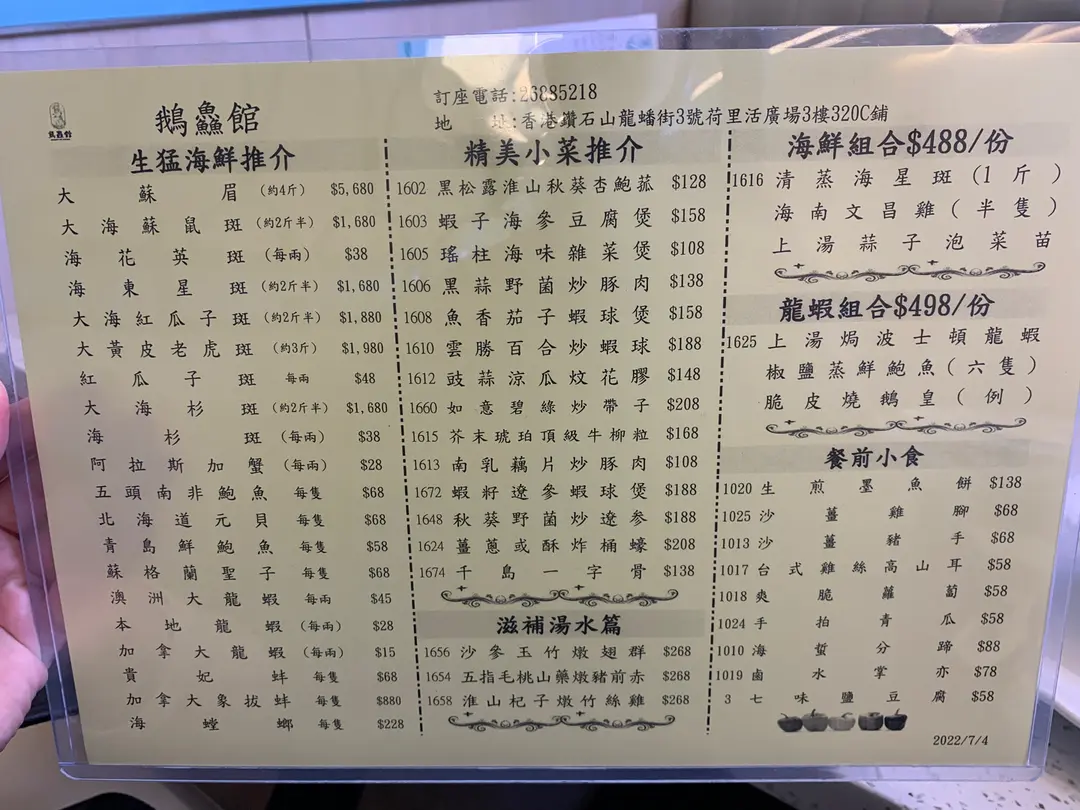 鵝鱻館
訂座電話:23885218
地 址:香港鑽石山龍蟠街3號荷里活廣場3樓320C鋪
生猛海鮮推介
大蘇眉 (約4斤) $5,680
大海蘇鼠斑 (約2斤半) $1,680
海花英斑 (每兩) $38
海東星斑 (約2斤半) $1,680
大海紅瓜子斑 (約2斤半) $1,880
大黃皮老虎斑 (約3斤) $1,980
紅瓜子斑 每兩 $48
大海杉斑 (約2斤半) $1,680
海杉斑 (每兩) $38
阿拉斯加蟹 (每兩) $28
五頭南非鮑魚 每隻 $68
北海道元貝 每隻 $68
青島鮮鮑魚 每隻 $58
蘇格蘭聖子 每隻 $68
澳洲大龍蝦 每兩 $45
本地龍蝦 (每兩) $28
加拿大龍蝦 (每兩) $15
貴妃蚌 每隻 $68
加拿大象拔蚌 每隻 $880
海螳螂 每隻 $228
精美小菜推介
1602 黑松露淮山秋葵杏鮑菰 $128
1603 蝦子海參豆腐煲 $158
1605 瑤柱海味雜菜煲 $108
1606 黑蒜野菌炒豚肉 $138
1608 魚香茄子蝦球煲 $158
1610 雲勝百合炒蝦球 $188
1612 豉蒜涼瓜炆花膠 $148
1660 如意碧綠炒帶子 $208
1615 芥末琥珀頂級牛柳粒 $168
1613 南乳藕片炒豚肉 $108
1672 蝦籽遼參蝦球煲 $188
1648 秋葵野菌炒遼参 $188
1624 薑蔥或酥炸桶蠔 $208
1674 千島一字骨 $138
滋補湯水篇
1656 沙參玉竹燉翅群 $268
1654 五指毛桃山藥燉豬前赤 $268
1658 淮山杞子燉竹絲雞 $268
海鮮組合$488/份
1616 清蒸海星斑(1斤)
海南文昌雞(半隻)
上湯蒜子泡菜苗
龍蝦組合$498/份
1625 上湯焗波士頓龍蝦
椒鹽蒸鮮鮑魚(六隻)
脆皮燒鵝皇(例)
餐前小食
1020 生煎墨魚餅 $138
1025 沙薑雞腳 $68
1013 沙薑豬手 $68
1017 台式雞絲高山耳 $58
1018 爽脆蘿蔔 $58
1024 手拍青瓜 $58
1010 海蜇分蹄 $88
1019 鹵水掌亦 $78
3 七味鹽豆腐 $58
2022/7/4